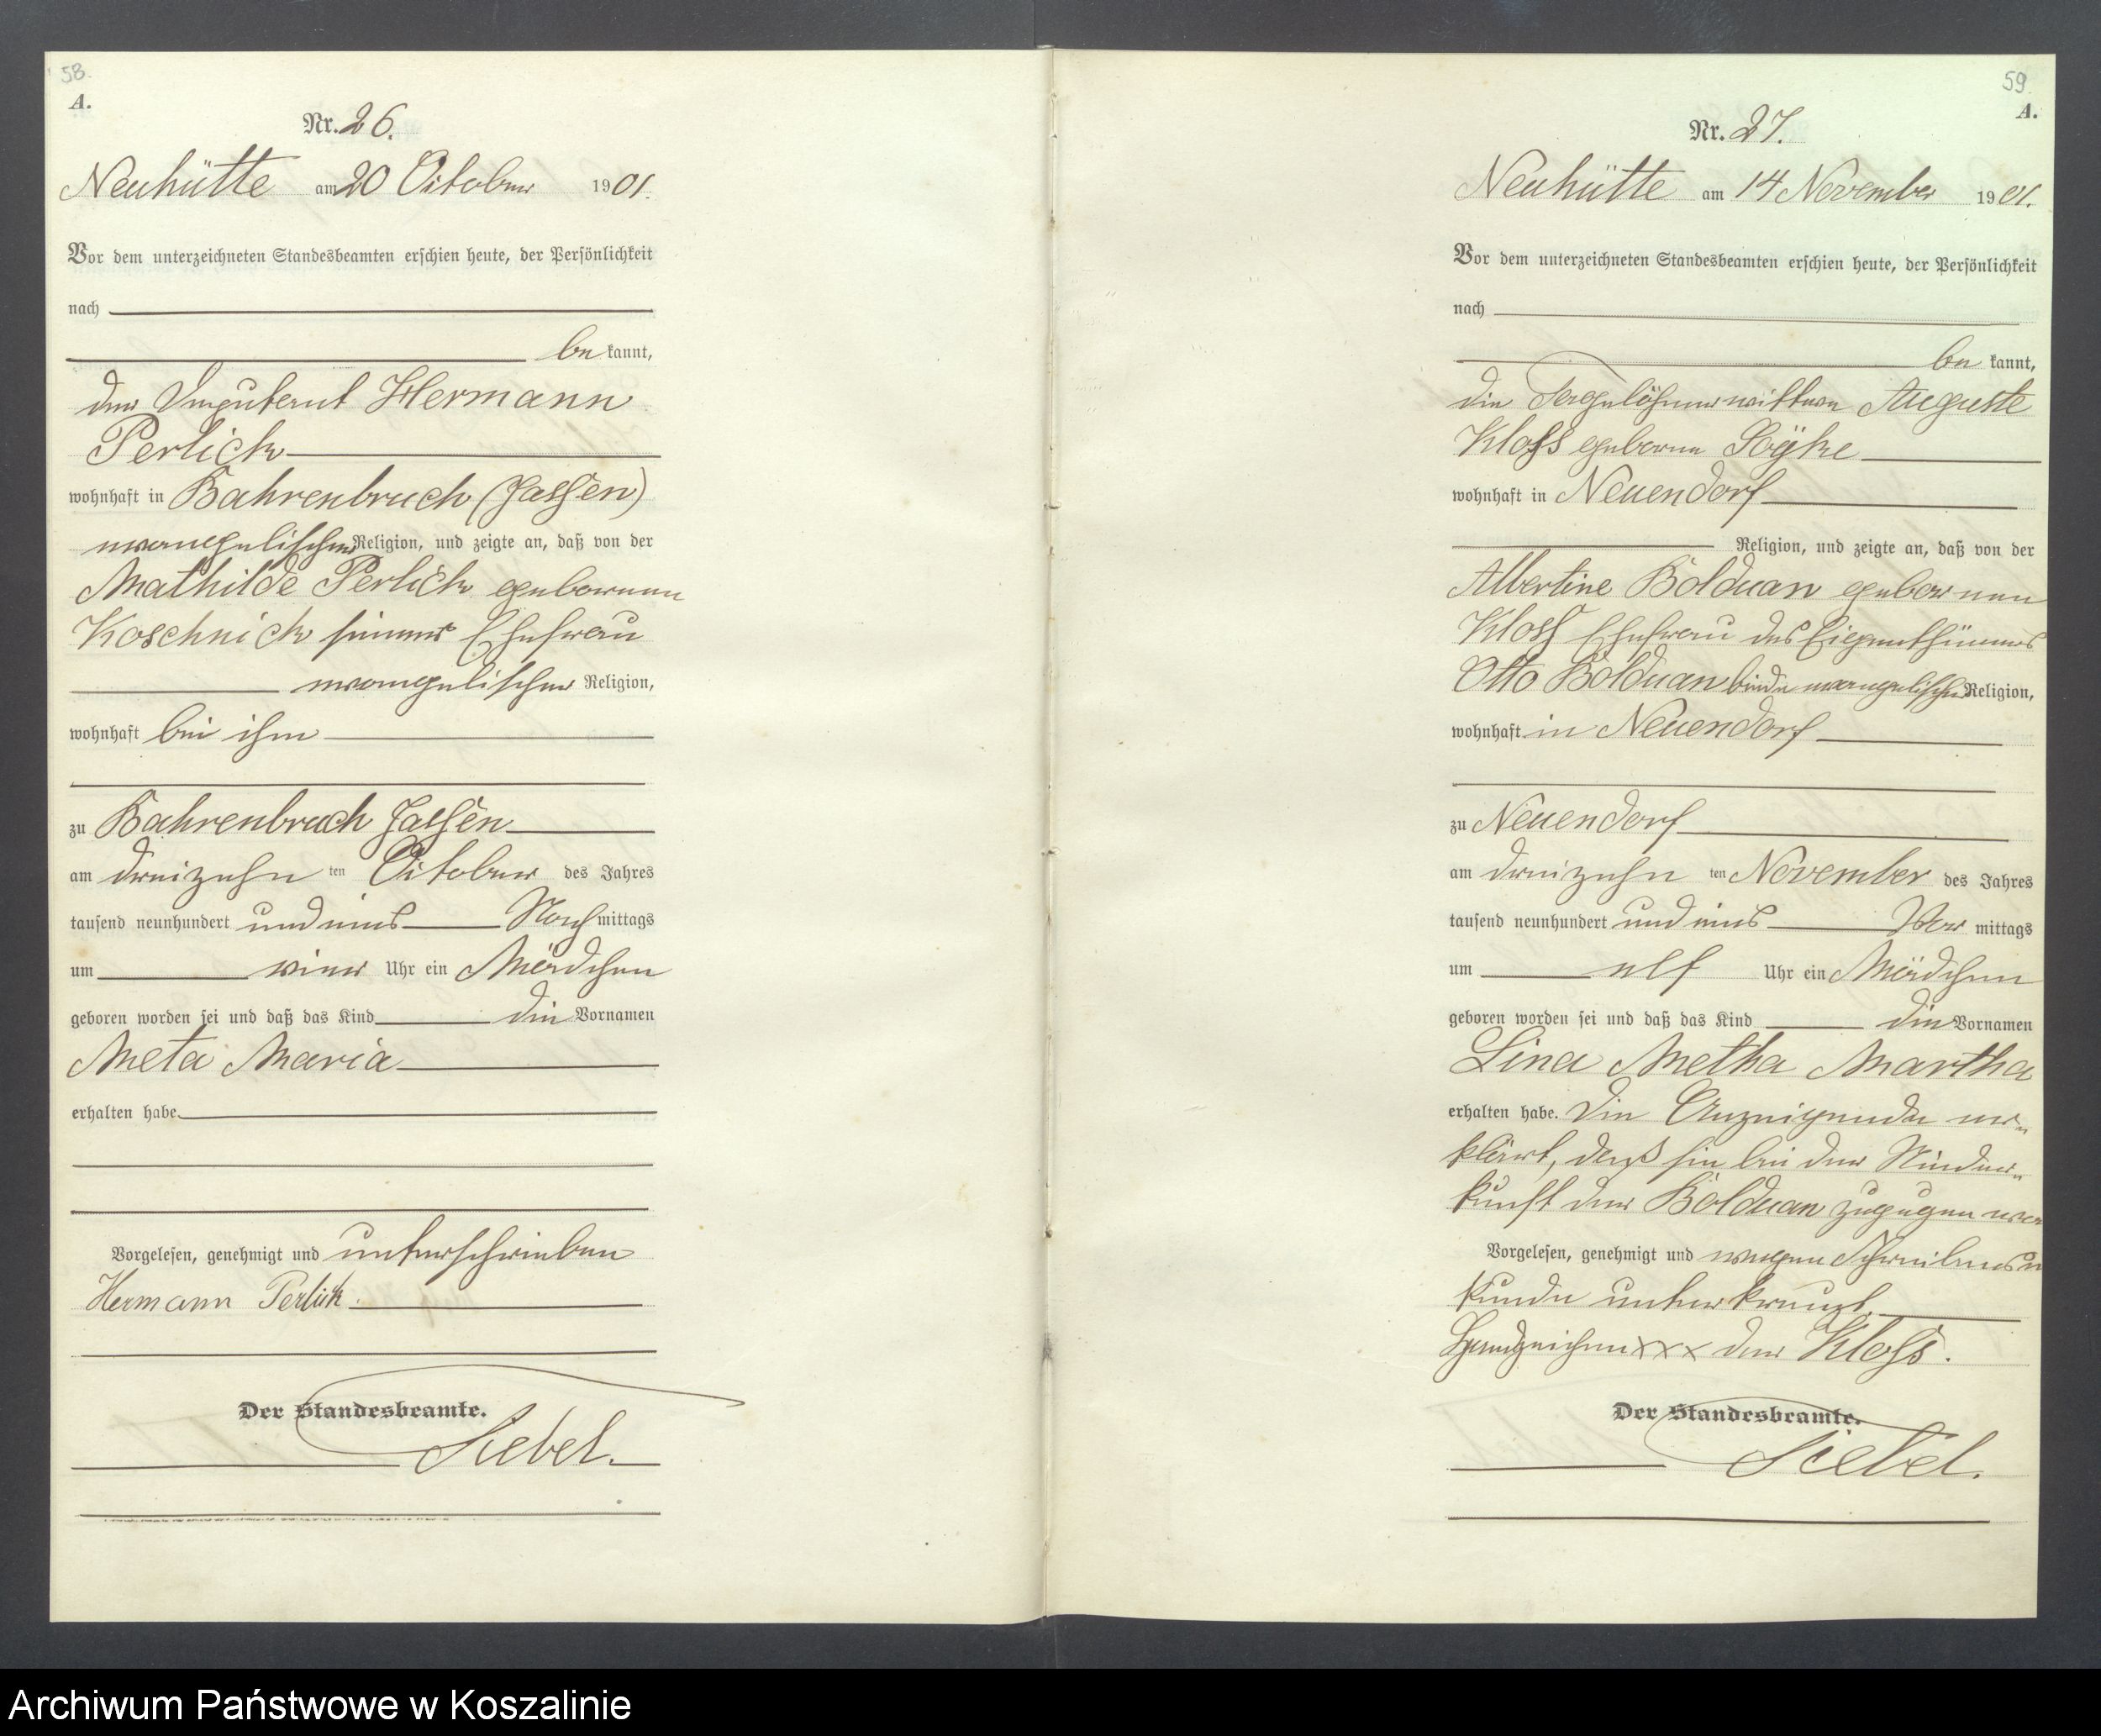 58.
A.
Nr. 26.
Neuhütte am 20 October 1901.
Vor dem unterzeichneten Standesbeamten erschien heute, der Persönlichkeit
nach
be kannt,
der Hermann
Perlick
wohnhaft in Bahrenbruch (Jassen)
evangelischer Religion, und zeigte an, daß von der
Mathilde Perlick geborenen
Koschnick seiner Ehefrau
evangelischer Religion,
wohnhaft bei ihm
zu Bahrenbruch Jassen
am dreizehn ten October des Jahres
tausend neunhundert und eins Nach mittags
um vier Uhr ein Mädchen
geboren worden sei und daß das Kind die Vornamen
Meta Maria
erhalten habe
Vorgelesen, genehmigt und unterschrieben
Hermann Perlick.
Der Standesbeamte.
Siebel.
59.
A.
Nr. 27.
Neuhütte am 14 November 1901.
Vor dem unterzeichneten Standesbeamten erschien heute, der Persönlichkeit
nach
be kannt,
die Tagelöhnerwittwe Auguste
Kloss geborene
wohnhaft in Neuendorf
Religion, und zeigte an, daß von der
Albertine Bolduan geborenen
Kloss Ehefrau des Eigenthümers
Otto Bolduan beide evangelischer Religion,
wohnhaft in Neuendorf
zu Neuendorf
am dreizehn ten November des Jahres
tausend neunhundert und eins Vor mittags
um elf Uhr ein Mädchen
geboren worden sei und daß das Kind die Vornamen
Lina Metha Martha
erhalten habe. Die Anzeigende er-
klärt, daß sie bei der Nieder-
kunft der Bolduan zugegen war
Vorgelesen, genehmigt und wegen Schreibensun
kunde unterkreuzt.
Handzeichen xxx der Kloss.
Der Standesbeamte.
Siebel.
Archiwum Państwowe w Koszalinie